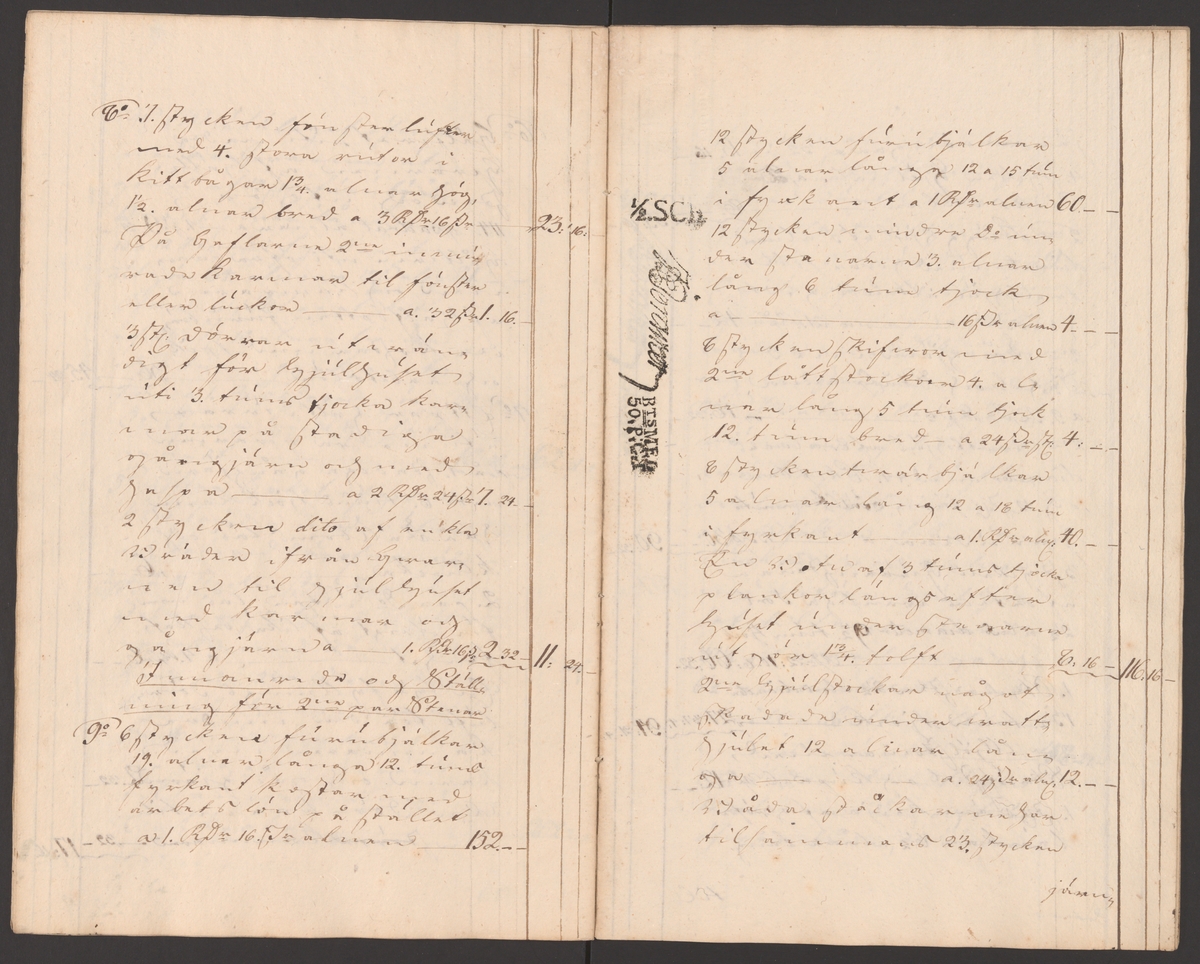 8o 7. stycken fönsterlüfter
med 4. stora rütor i
Kittbågar 1 3/4. alnar hög,
1 1/2. alnar bred a 3 RDr 16 sr 23. 16.
På Gaflarne 2ne inmü
rade karmar til fönster
eller lückor a. 32 sr 1. 16.
3 st. dörrar utvän
digt för hjülhüset
üti 3. tüms tjocka kar
mar på stadiga
gångjärn och med
haspa a 2 RDr 24 sr 7. 24.
2 stycken dito af enkla
bräder ifrån qwar
nen til hjülhüset
med karmar och
gångjärn a 1. RDr 16 sr 2. 32 11: 24.
Timanrede och Ställ
ning för 2ne par Stenar
9o 6 stycken fürübjälkar
19. alnar långa 12. tüms
fyrkant kostar med
arbetslön på stället
a 1. RDr 16. sr alnen 152.
12 stycken fürübjälkar
5 alnar långa 12 a 15 tüm
i fyrkant a 1 RDr alnen 60
1/2.SCh
12 stycken mindre do ün
der stenarne 3. alnar
lång 6 tüm tjock
a 16 sr alnen 4.
8 stycken skifwor med
2ne lättstockar 4. al
nar lång 5 tüm tjock
12. tüm bred a 24 sr st. 4:
BTSMFH
50.P.Ct
8 stycken twärbjälkar
5 alnar lång 12 a 18 tüm
i fyrkant a 1. RDr aln. 40.
En af 3 tüms tjocka
plankor längs efter
hüset ünder stenarne
ütgör 1 3/4. tolft 8. 16 116. 16
2ne hjülstockar något
skadade ünder watt
hjület 12 alnar lån
ga a. 24 sr aln. 12.
Båda stockarne har
tilsammans 23. stycken
järn